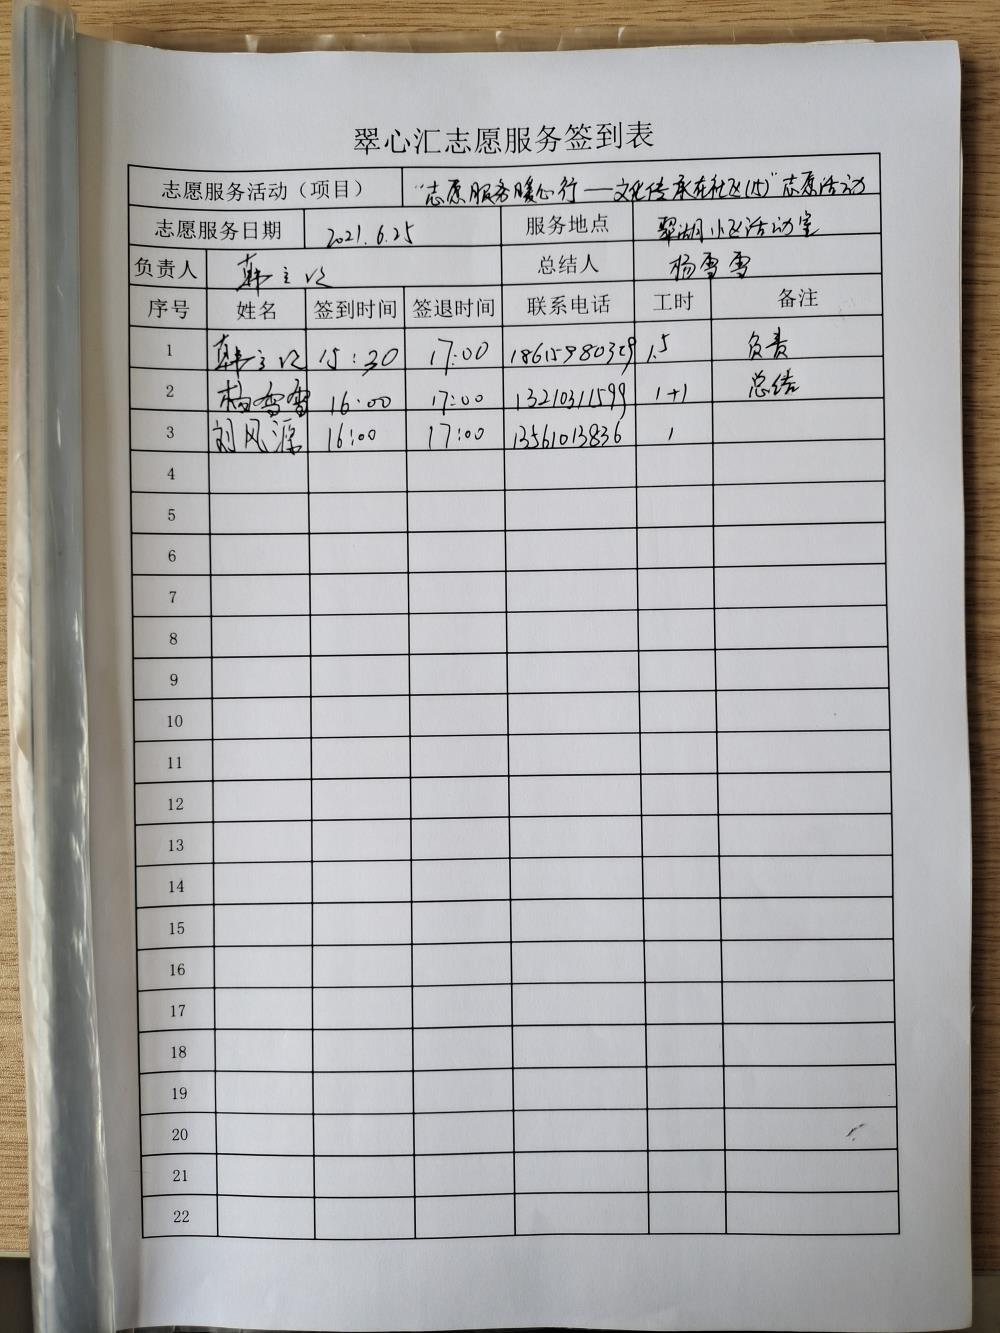 翠心汇志愿服务签到表
志愿服务活动（项目） “志愿服务暖心行——文化传承在社区(15)”志愿活动
志愿服务日期 2021.6.25 服务地点 翠湖小区活动室
负责人 韩立 总结人 杨雪雪
序号 姓名 签到时间 签退时间 联系电话 工时 备注
1 韩立 15:30 17:00 18615980329 1.5 负责
2 杨雪雪 16:00 17:00 13210311599 1+1 总结
3 刘风源 16:00 17:00 13561013836 1
4
5
6
7
8
9
10
11
12
13
14
15
16
17
18
19
20
21
22